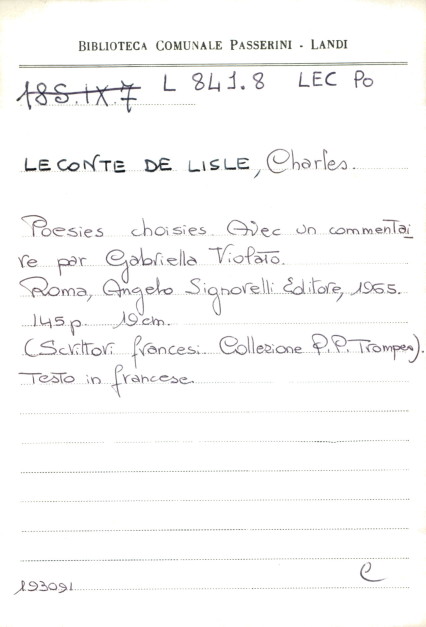 BIBLIOTECA COMUNALE PASSERINI - LANDI
18S.IX.7 L 841.8 LEC Po
LECONTE DE LISLE, Charles.
Poesies choisies. Avec un commentai
re par Gabriella Violato.
Roma, Angelo Signorelli Editore, 1965.
145 p. 19 cm.
(Scrittori francesi. Collezione P.P. Trompeo).
Testo in francese.
C
193091